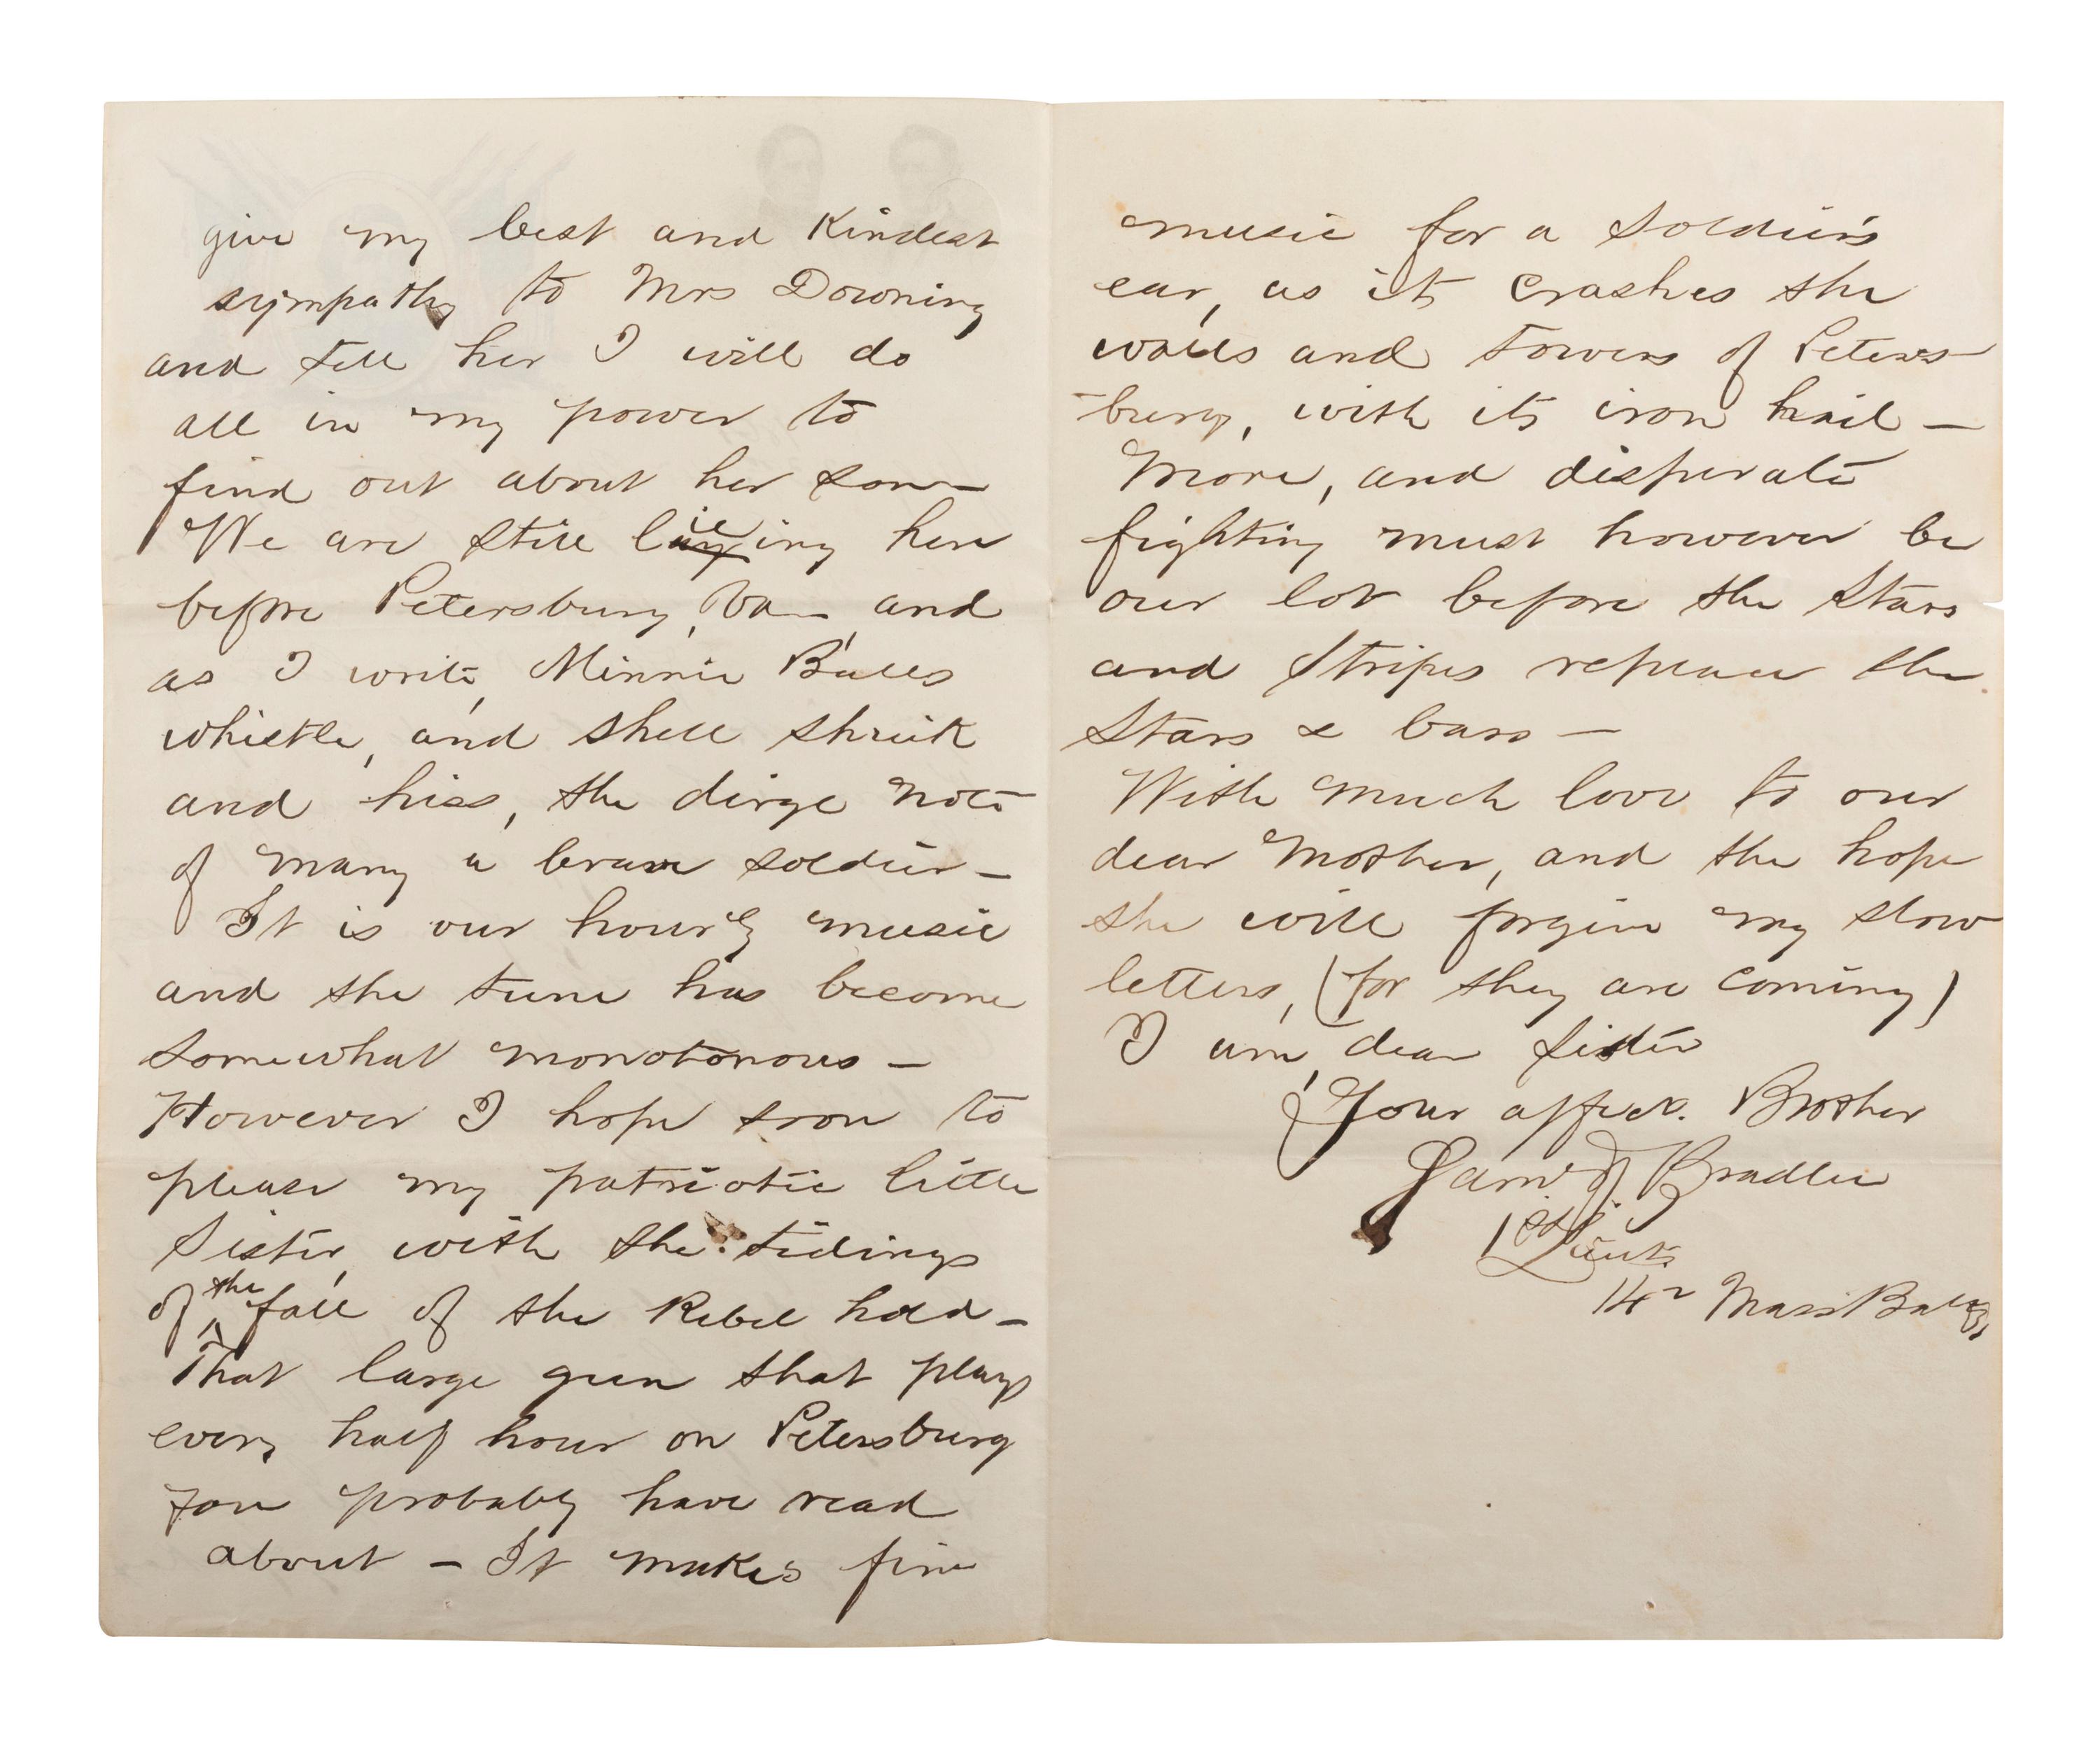 give my best and Kindest
sympathy to Mrs Downing
and tell her I will do
all in my power to
find out about her son—
We are still lieing here
before Petersburg, Va— and
as I write, Minnie Balls
whistle, and shell shriek
and hiss, the dirge note
of many a brave soldier—
It is our hourly music
and the tune has become
somewhat monotonous—
However I hope soon to
please my patriotic little
Sister, with the tidings
of the fall of the Rebel hold—
That large gun that plays
every half hour on Petersburg
you probably have read
about — It makes fine
music for a soldier's
ear, as it crashes the
walls and towers of Peters
-burg, with its iron hail—
More, and desperate
fighting must however be
our lot before the Stars
and Stripes replace the
Stars & bars—
With much love to our
dear Mother, and the hope
she will forgive my slow
letters, (for they are coming)
I am, dear Sister
Your affect. Brother
Sam'l J. Bradlee
1st Lieut.
14" Mass Batty,